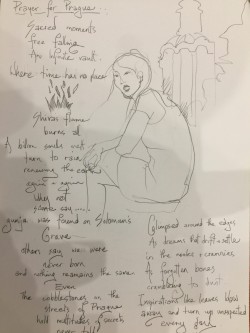 Prayer for Prague...
Sacred moments
free falling
An infinite vault.
Where time has no place
Shivas flame
burns all
A billion smiles wait
turn to rain
renewing the earth
again + again
Why not
some say
ganja was found on Solomon's
Grave
others say we were
never born
and nothing remains the same
Even
the cobblestones in the
streets of Prague
hold multitudes of
Glimpsed around the edges
As dreams that drift + settle
in the nooks + crannies
As forgotten bones
crumbling to dust
Inspirations like leaves blow
away and turn up
every day